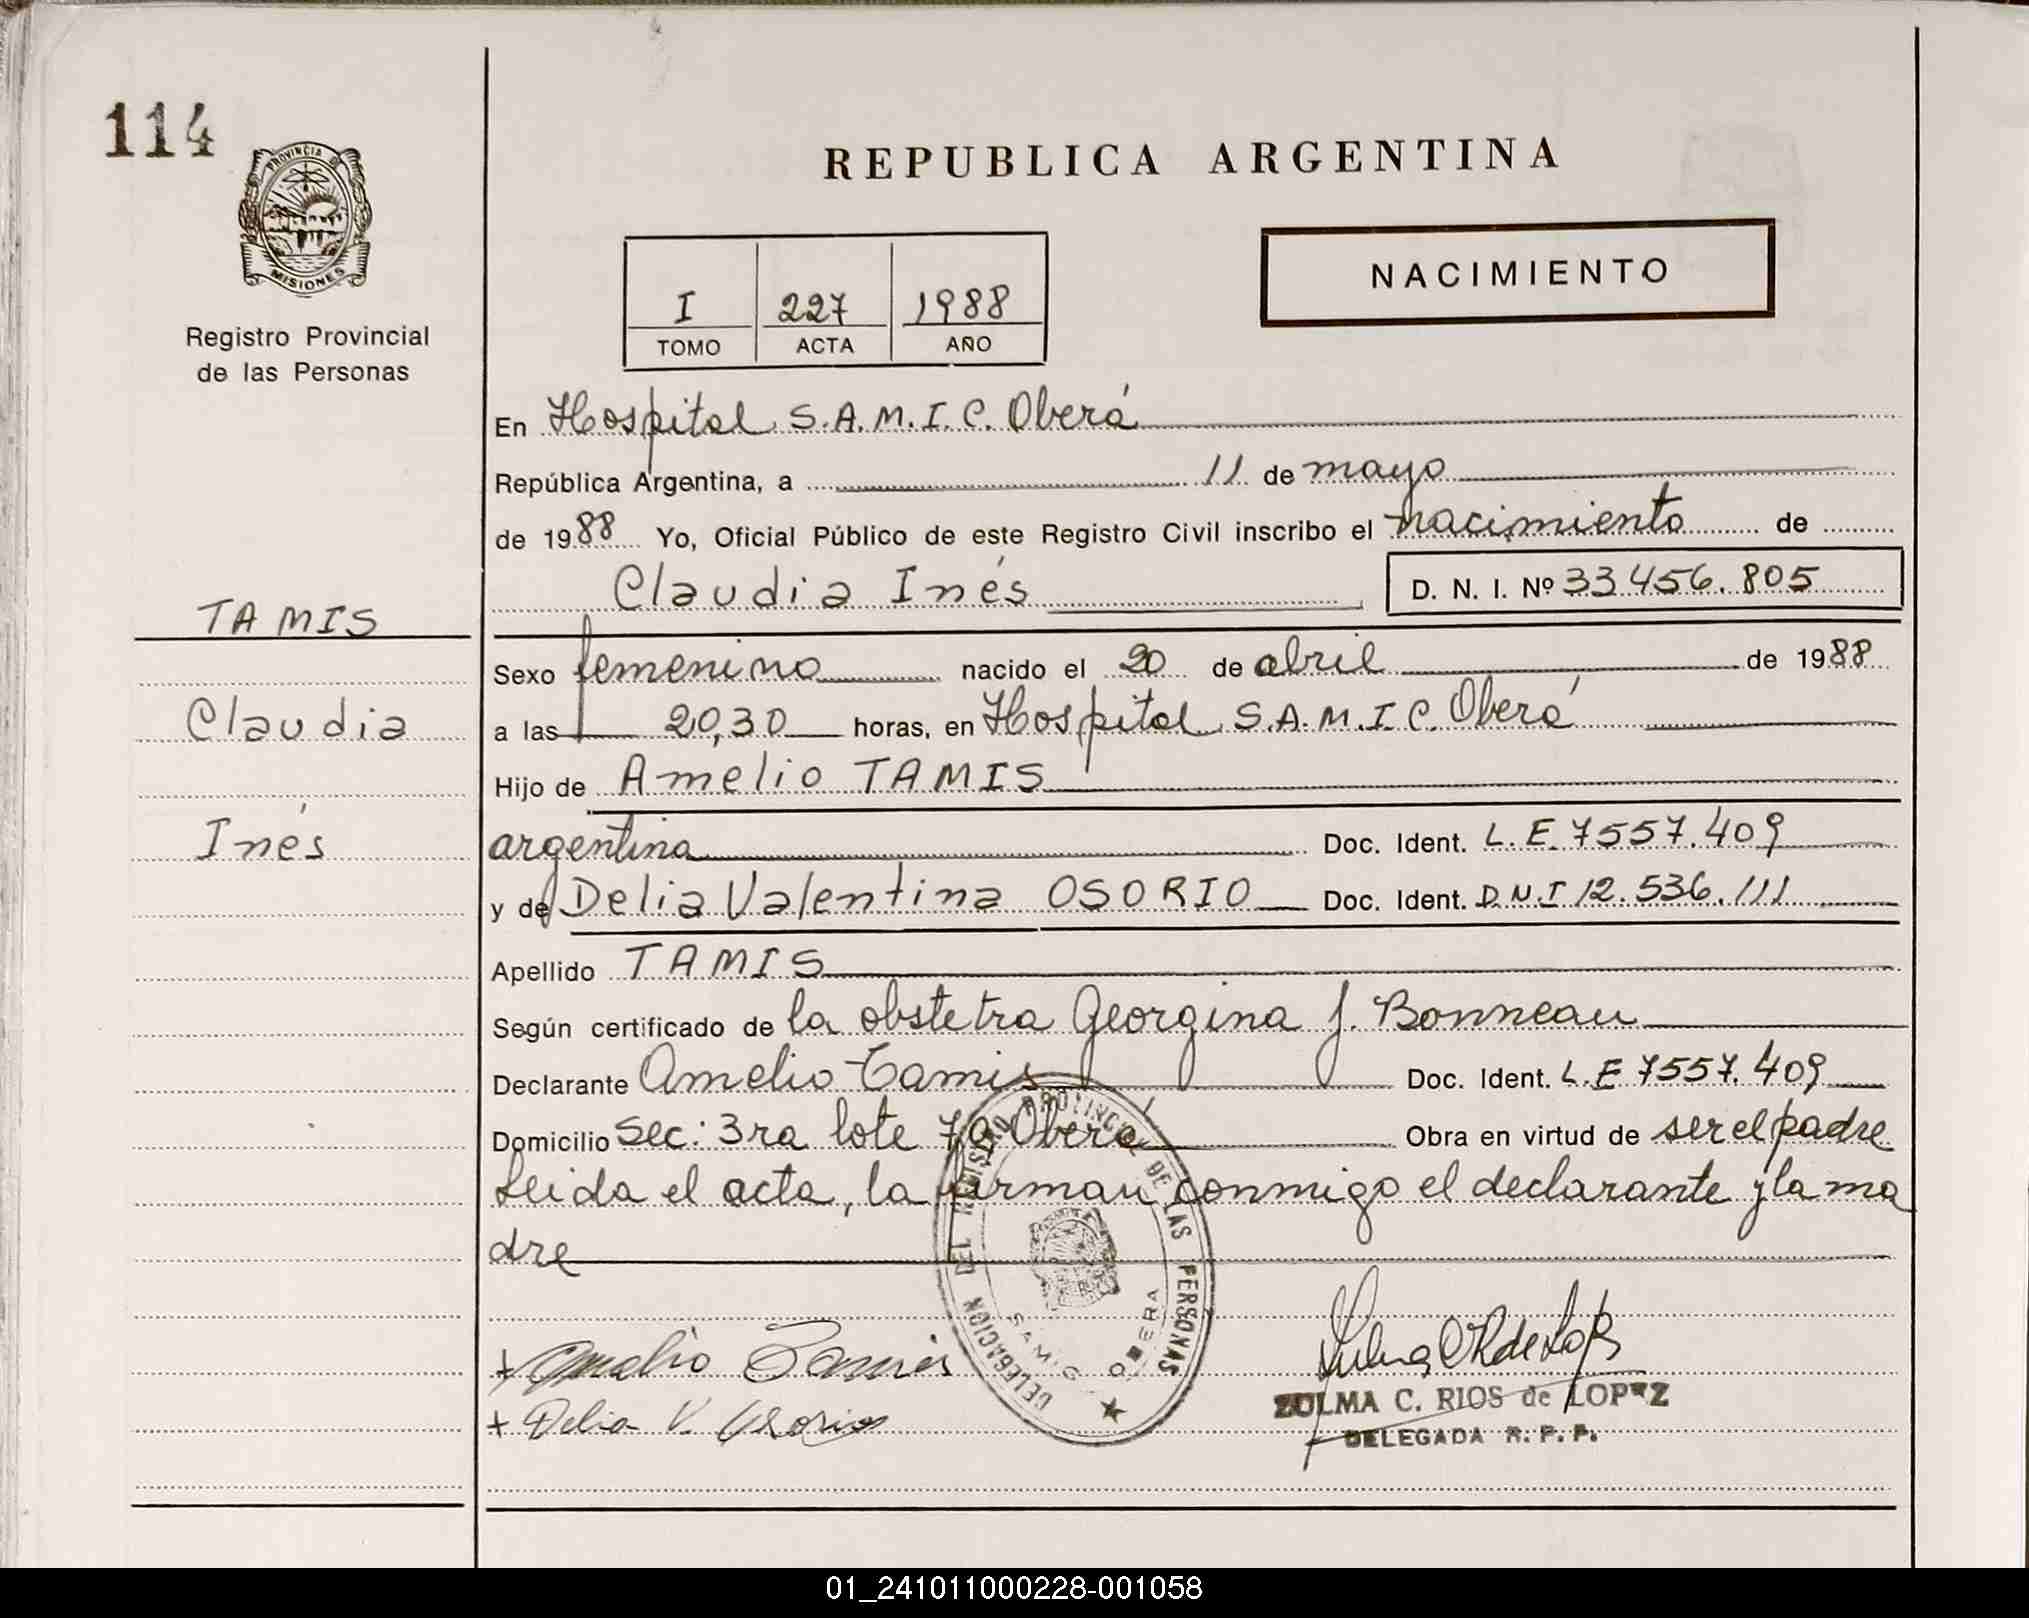 114
PROVINCIA DE
MISIONES
Registro Provincial
de las Personas
REPUBLICA ARGENTINA
I 227 1988
TOMO ACTA AÑO
NACIMIENTO
En Hospital S.A.M.I.C. Oberá
República Argentina, a 11 de mayo
de 1988 Yo, Oficial Público de este Registro Civil inscribo el nacimiento de
Claudia Inés D. N. I. Nº 33456.805
TAMIS
Claudia
Inés
Sexo femenino nacido el 20 de abril de 1988
a las 20,30 horas, en Hospital S.A.M.I.C. Oberá
Hijo de Amelio TAMIS
argentina Doc. Ident. L.E. 7557.409
y de Delia Valentina OSORIO Doc. Ident. D.N.I 12.536.111
Apellido TAMIS
Según certificado de la obstetra Georgina J. Bonneau
Declarante Amelio Tamis Doc. Ident. L.E 7557.409
Domicilio Sec: 3ra lote Oberá Obra en virtud de ser el padre
Leida el acta, la firman conmigo el declarante y la ma
dre
DELEGACION DEL REGISTRO PROVINCIAL DE LAS PERSONAS
SAMIC OBERA
+ Amelio Tamis
+ Delia V. Osorio
ZULMA C. RIOS de LOPEZ
DELEGADA R. P. P.
01_241011000228-001058